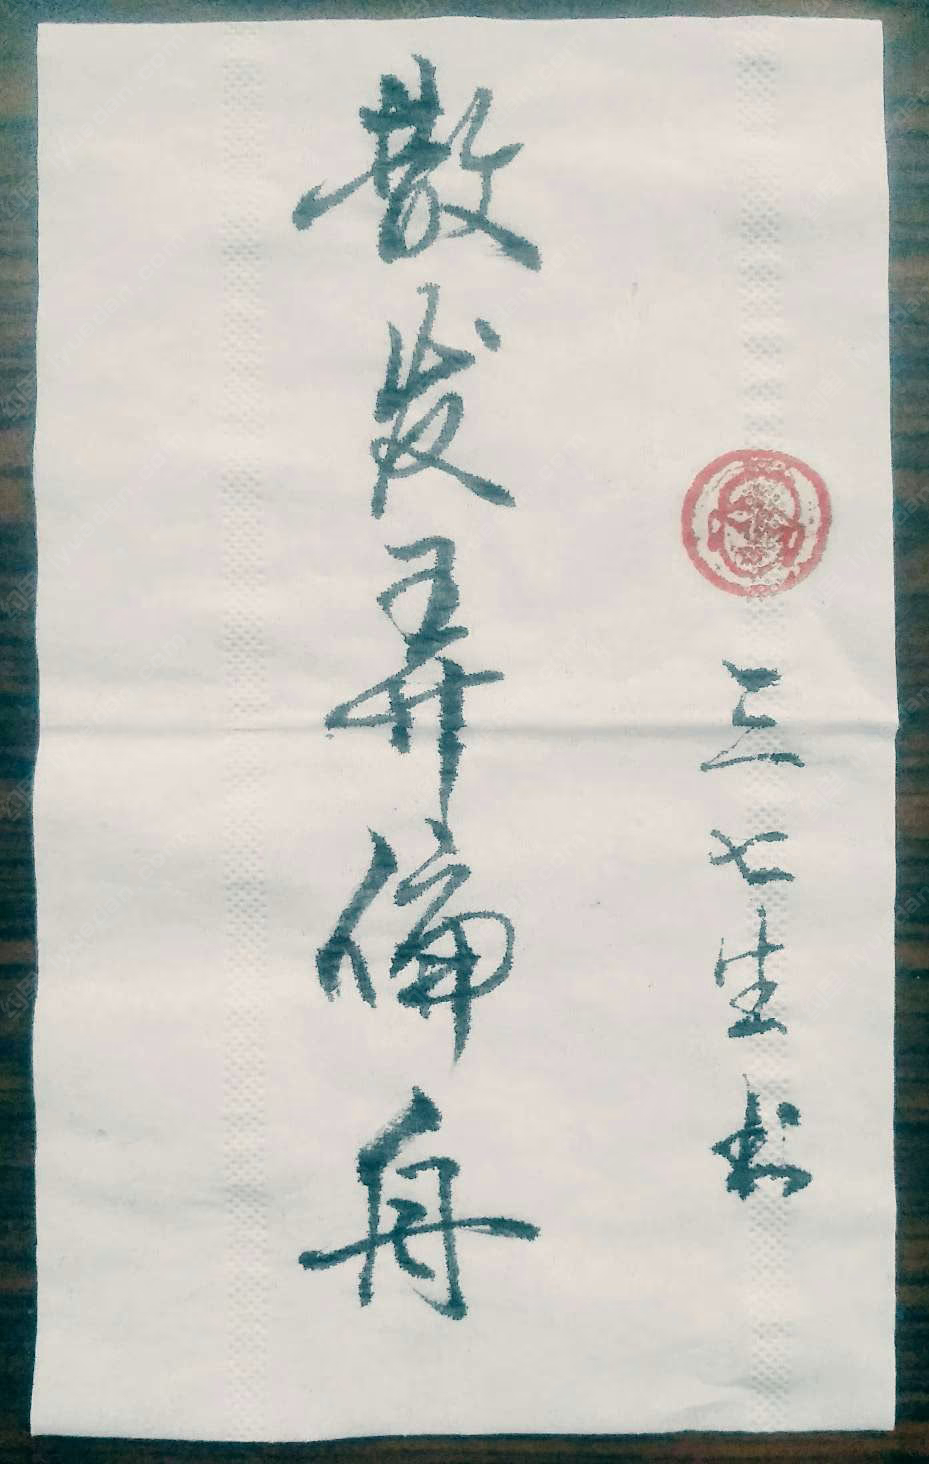 散发弄偏舟
三七生书